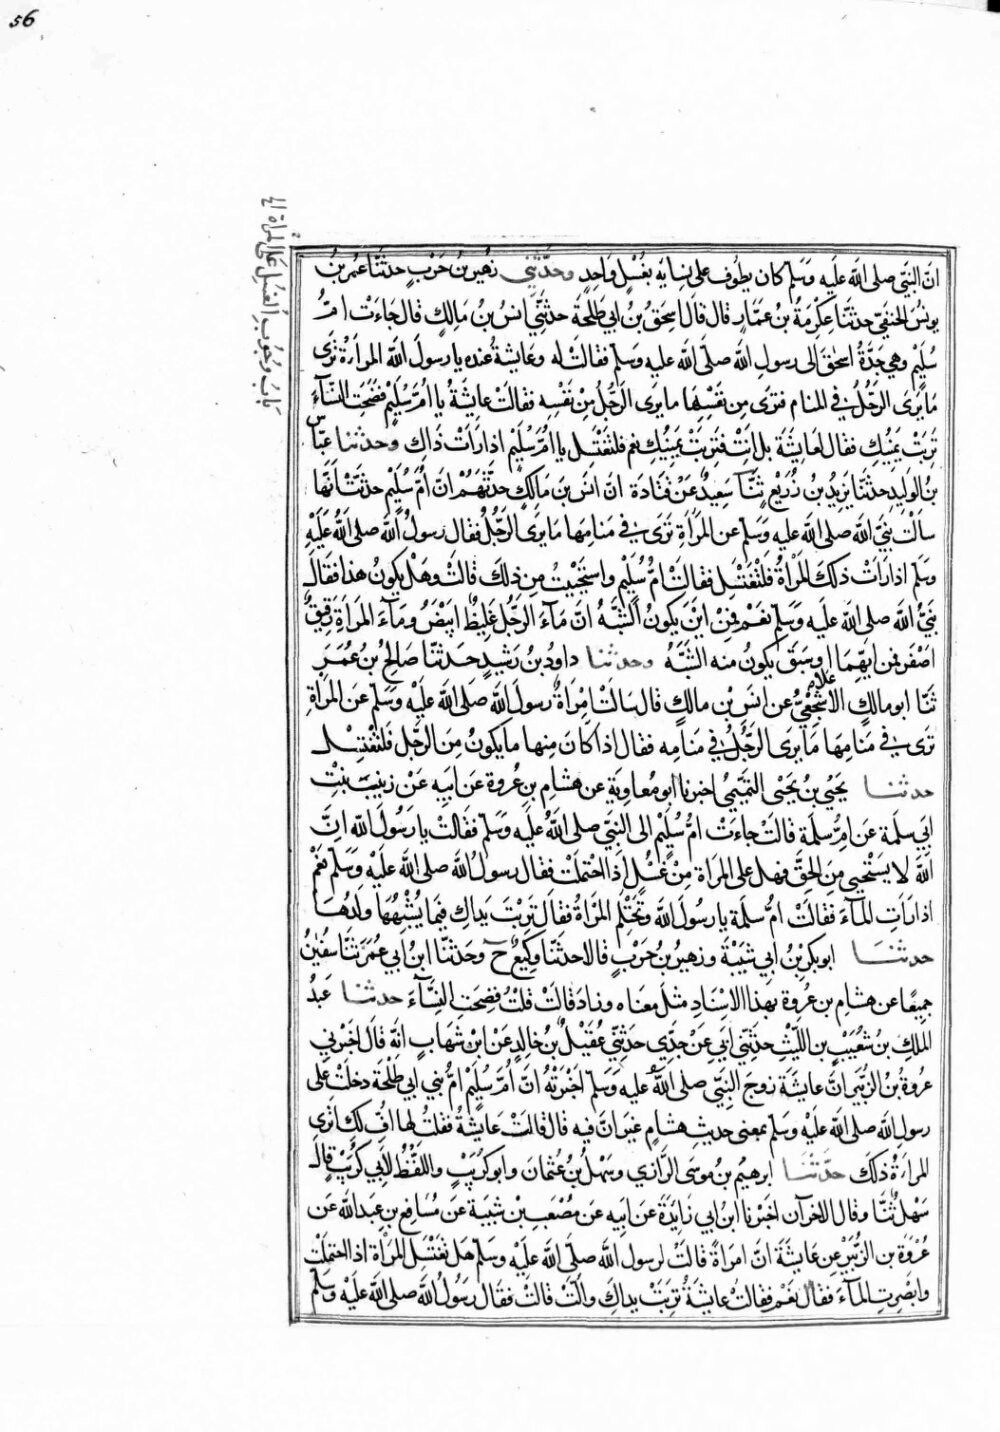 56
باب وجوب الغسل على المراة الخ
ان النبي صلى الله عليه وسلم كان يطوف على نسايه بغسل واحد وحدثني زهير بن حرب حدثنا عمر بن
يونس الحنفي حدثنا عكرمة بن عمار قال قال اسحق بن ابي طلحة حدثني انس بن مالك قال جاءت ام
سليم وهي جدة اسحق الى رسول الله صلى الله عليه وسلم فقالت له وعايشة عنده يا رسول الله المراة ترى
ما يرى الرجل في المنام فترى من نفسها ما يرى الرجل من نفسه فقالت عايشة يا ام سليم فضحت النساء
تربت يمينك فقال لعايشة بل انت فتربت يمينك نعم فلتغتسل يا ام سليم اذا رات ذاك وحدثنا عباس
بن الوليد حدثنا يزيد بن زريع ثنا سعيد عن قتادة ان انس بن مالك حدثهم ان ام سليم حدثت انها
سالت نبي الله صلى الله عليه وسلم عن المراة ترى في منامها ما يرى الرجل فقال رسول الله صلى الله عليه
وسلم اذا رات ذلك المراة فلتغتسل فقالت ام سليم واستحييت من ذلك قالت وهل يكون هذا فقال
نبي الله صلى الله عليه وسلم نعم فمن اين يكون الشبه ان ماء الرجل غليظ ابيض وماء المراة رقيق
اصفر فمن ايهما علا او سبق يكون منه الشبه وحدثنا داود بن رشيد حدثنا صالح بن عمر
ثنا ابو مالك الاشجعي عن انس بن مالك قال سالت امراة رسول الله صلى الله عليه وسلم عن المراة
ترى في منامها ما يرى الرجل في منامه فقال اذا كان منها ما يكون من الرجل فلتغتسل
حدثنا يحيى بن يحيى التميمي اخبرنا ابو معاوية عن هشام بن عروة عن ابيه عن زينب بنت
ابي سلمة عن ام سلمة قالت جاءت ام سليم الى النبي صلى الله عليه وسلم فقالت يا رسول الله ان
الله لا يستحيي من الحق فهل على المراة من غسل اذا احتلمت فقال رسول الله صلى الله عليه وسلم نعم
اذا رات الماء فقالت ام سلمة يا رسول الله وتحتلم المراة فقال تربت يداك فبما يشبهها ولدها
حدثنا ابو بكر بن ابي شيبة وزهير بن حرب قالا حدثنا وكيع ح وحدثنا ابن ابي عمر ثنا سفين
جميعا عن هشام بن عروة بهذا الاسناد مثل معناه وزاد قالت قلت فضحت النساء حدثنا عبد
الملك بن شعيب بن الليث حدثني ابي عن جدي حدثني عقيل بن خالد عن ابن شهاب انه قال اخبرني
عروة بن الزبير ان عايشة زوج النبي صلى الله عليه وسلم اخبرته ان ام سليم ام بني ابي طلحة دخلت على
رسول الله صلى الله عليه وسلم بمعنى حديث هشام غير ان فيه قال قالت عايشة فقلت لها اف لك اترى
المراة ذلك حدثنا ابرهيم بن موسى الرازي وسهل بن عثمان وابو كريب واللفظ لابي كريب قال
سهل ثنا وقال الاخران اخبرنا ابن ابي زايدة عن ابيه عن مصعب بن شيبة عن مسافع بن عبد الله عن
عروة بن الزبير عن عايشة ان امراة قالت لرسول الله صلى الله عليه وسلم هل تغتسل المراة اذا احتلمت
وابصرت الماء فقال نعم فقالت عايشة تربت يداك والت قالت فقال رسول الله صلى الله عليه وسلم